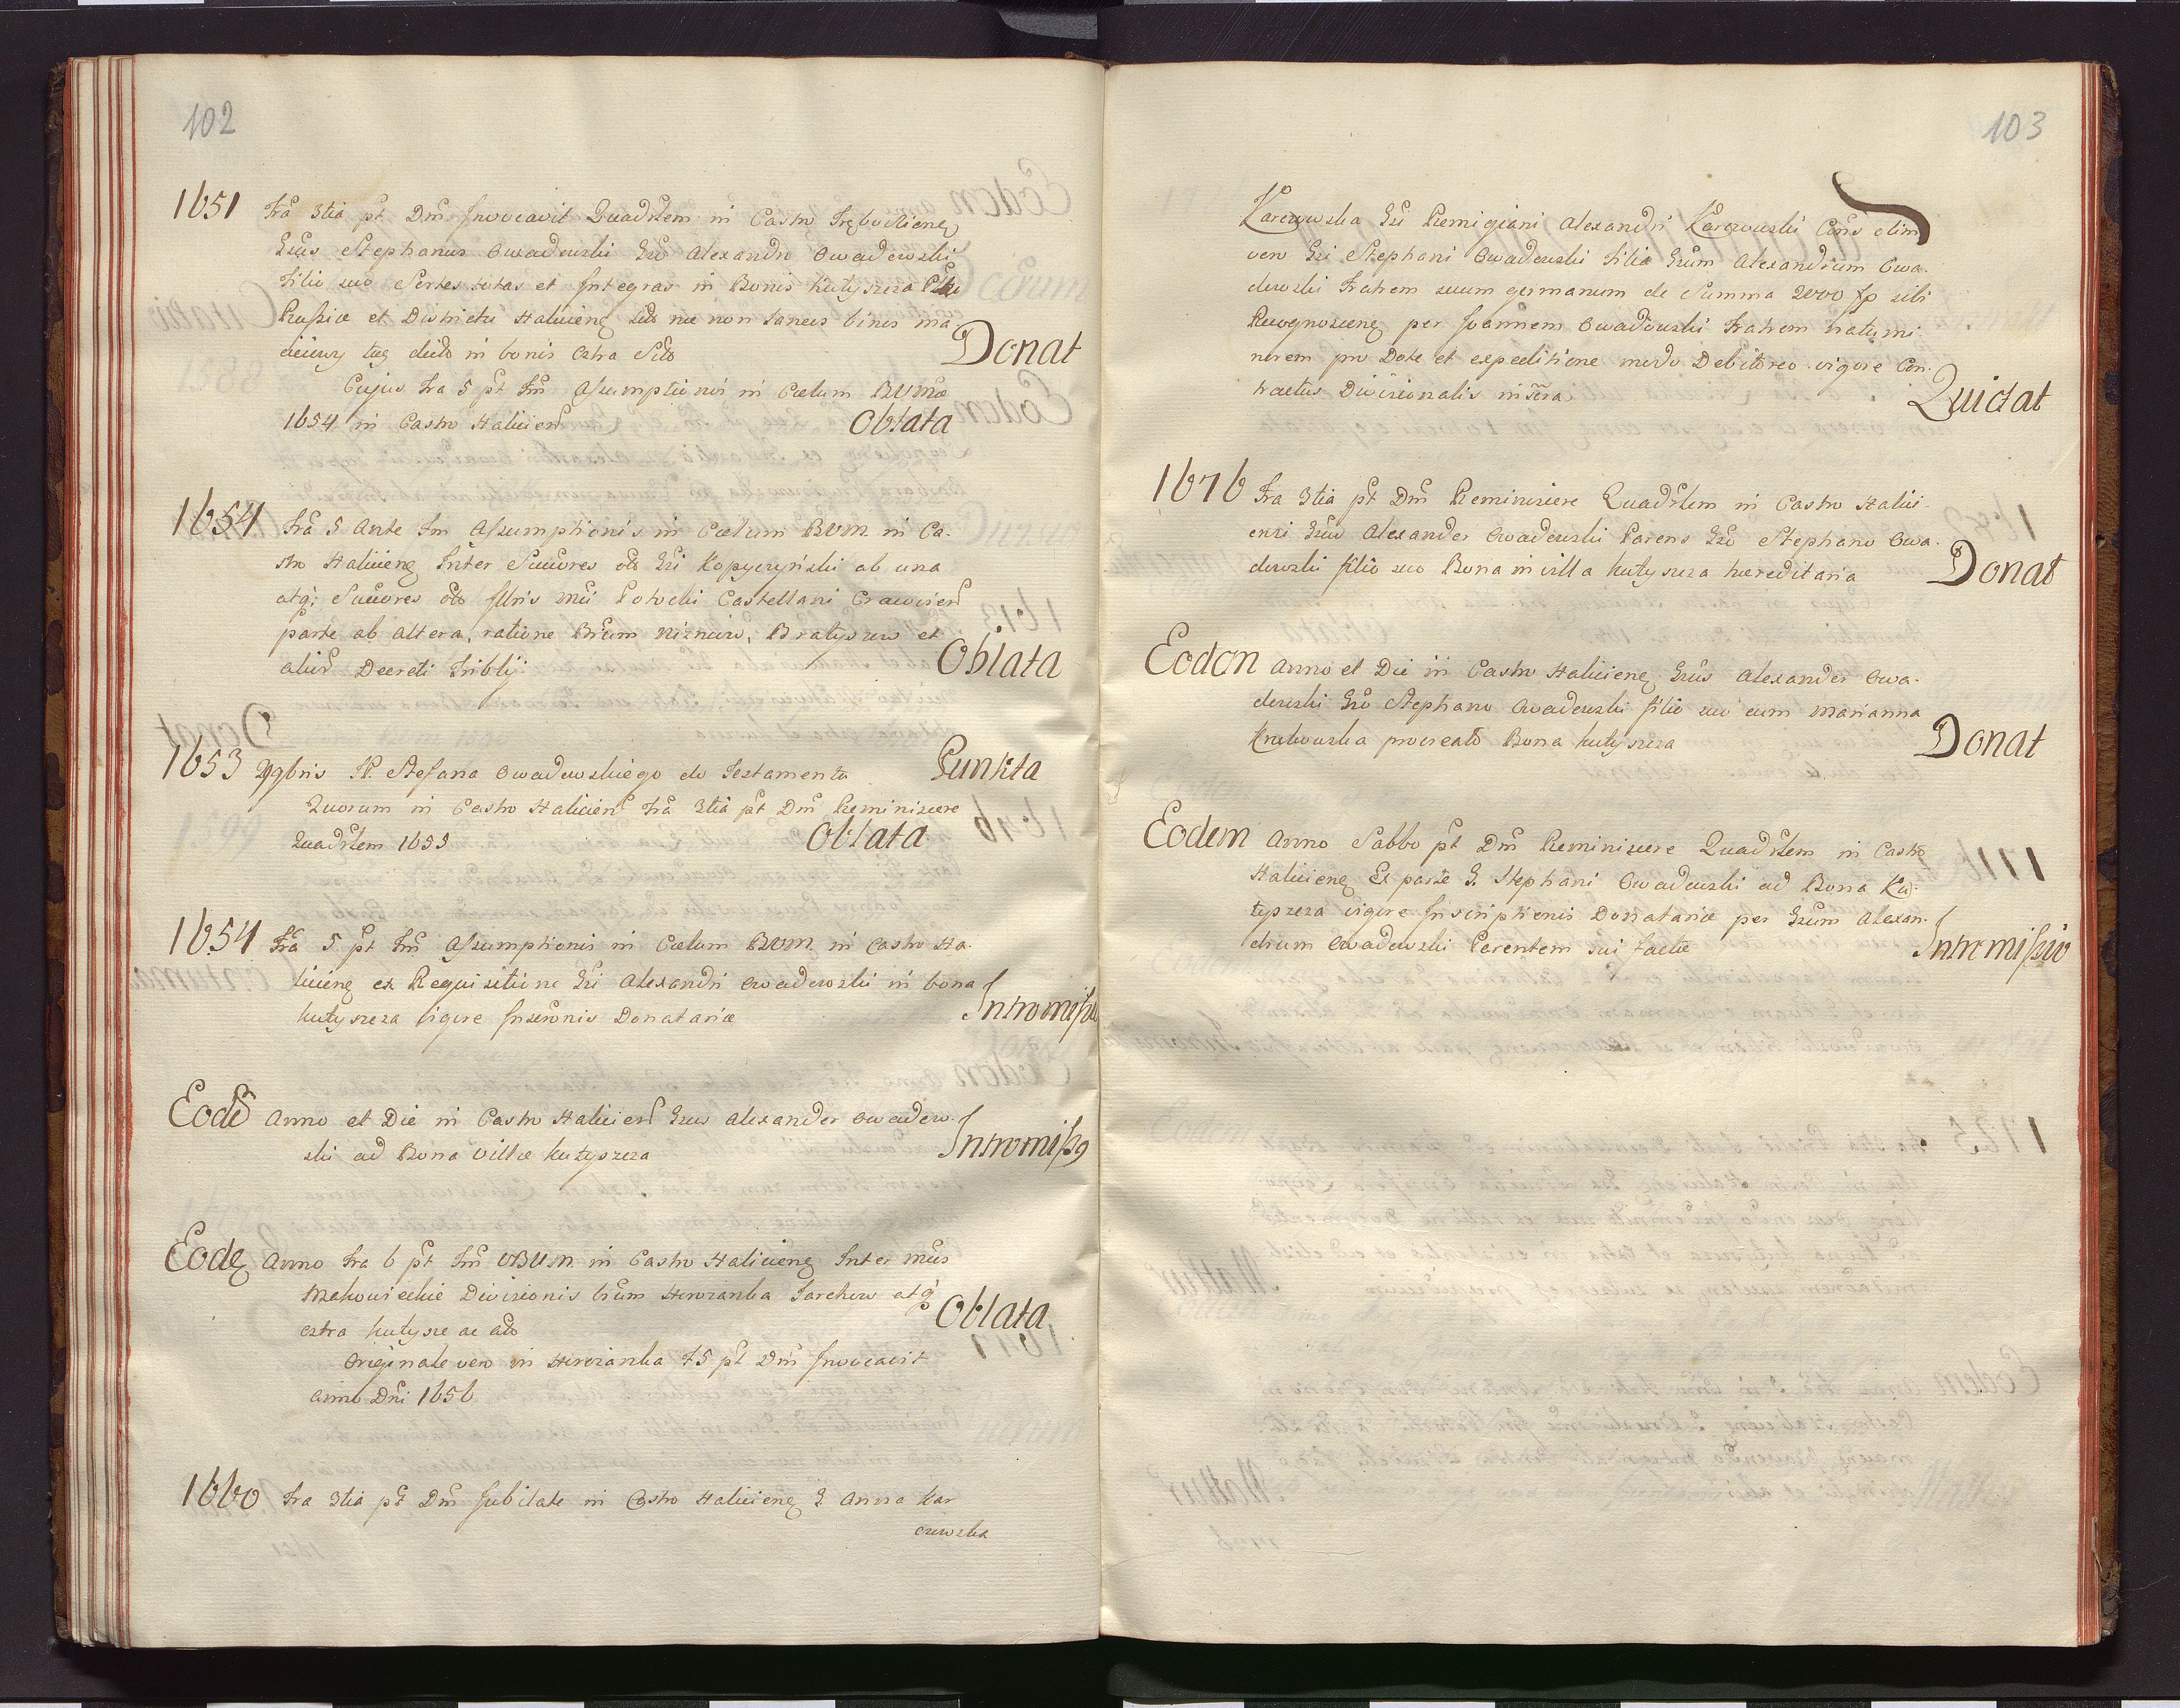 102
1651 Fra 3tia pt Dm Invocavit Quadrlem in Castro Trębovlieneg
Gsus Stephanus Owadowski Gso Alexandro Owadowski
Filio suo Sortes totas et Integras in Bonis Kutyszcza
Russiæ et Districtu Halicieng nec non laneis binis ma
in bonis extra Donat
Cujus Fra 5 pt Fm Assumptionis in Cœlum BVMæ
1654 in Castro Halicien Oblata
1654 Fra 5 Ante Fm Assumptionis in Cœlum BVM in Ca-
stro Halicieng Inter Succores Gsi Kopyczyński ab una
atq; Succores Potocki Castellani Cracovien
parte ab altera, ratione Brum Nizniow, Bratyszow et
alior Decreti Triblij Oblata
1653 9bris JP. Stefana Owadowskiego do Testamentu Punkta
Quorum in Castro Halicien Fra 3tia pt Dm Reminiscere
Quadrlem 1655 Oblata
1654 Fra 5 pt Fm Assumptionis in Cœlum BVM in Castro Ha-
licieng ex Requisitione Gsi Alexandri Owadowski in bona
Kutyszcza vigore Inscronis Donatariæ Intromissio
Eode Anno et Die in Castro Halicien Gsus Alexander Owadow-
ski ad Bona Villæ Kutyszcza Intromiss9
Eode Anno Fra 6 pt Fm in Castro Halicieng Inter
Makowieckie Divisionis brum Hrozianka Sarchow atq
extra Kutyszcze Oblata
Originale vero in Hrozianka F5 pt Dm Invocavit
anno Dni 1656
1660 Fra 3tia pt Dm Jubilate in Castro Halicieng G Anna Kar
czowska
103
Karczowska Gsi Remigiani Alexandri Karczowski Cons olim
vero Gsi Stephani Owadowski Filia Gsum Alexandrum Owa-
dowski Fratrem suum germanum de Summa 2000 fp sibi
Recognosceng per Joannem Owadowski Fratrem natu mi-
norem pro Dote et expeditione modo Debitoreo vigore Con-
tractus Divisionalis Quietat
1676 Fra 3tia pt Dm Reminiscere Quadrlem in Castro Halici-
ensi Gsus Alexander Owadowski Parens Gso Stephano Owa-
dowski filio suo Bona in villa Kutyszcza hæreditaria Donat
Eodem Anno et Die in Castro Halicieng Gsus Alexander Owa-
dowski Gso Stephano Owadowski filio suo cum Marianna
Krukowska procreato Bona Kutyszcza Donat
Eodem Anno Sabbo pt Dm Reminiscere Quadrlem in Castro
Halicieng Ex parte G. Stephani Owadowski ad Bona Ku-
tyszcza vigore Inscriptionis Donatariæ per Gsum Alexan-
drum Owadowski Parentem sui factæ Intromissio